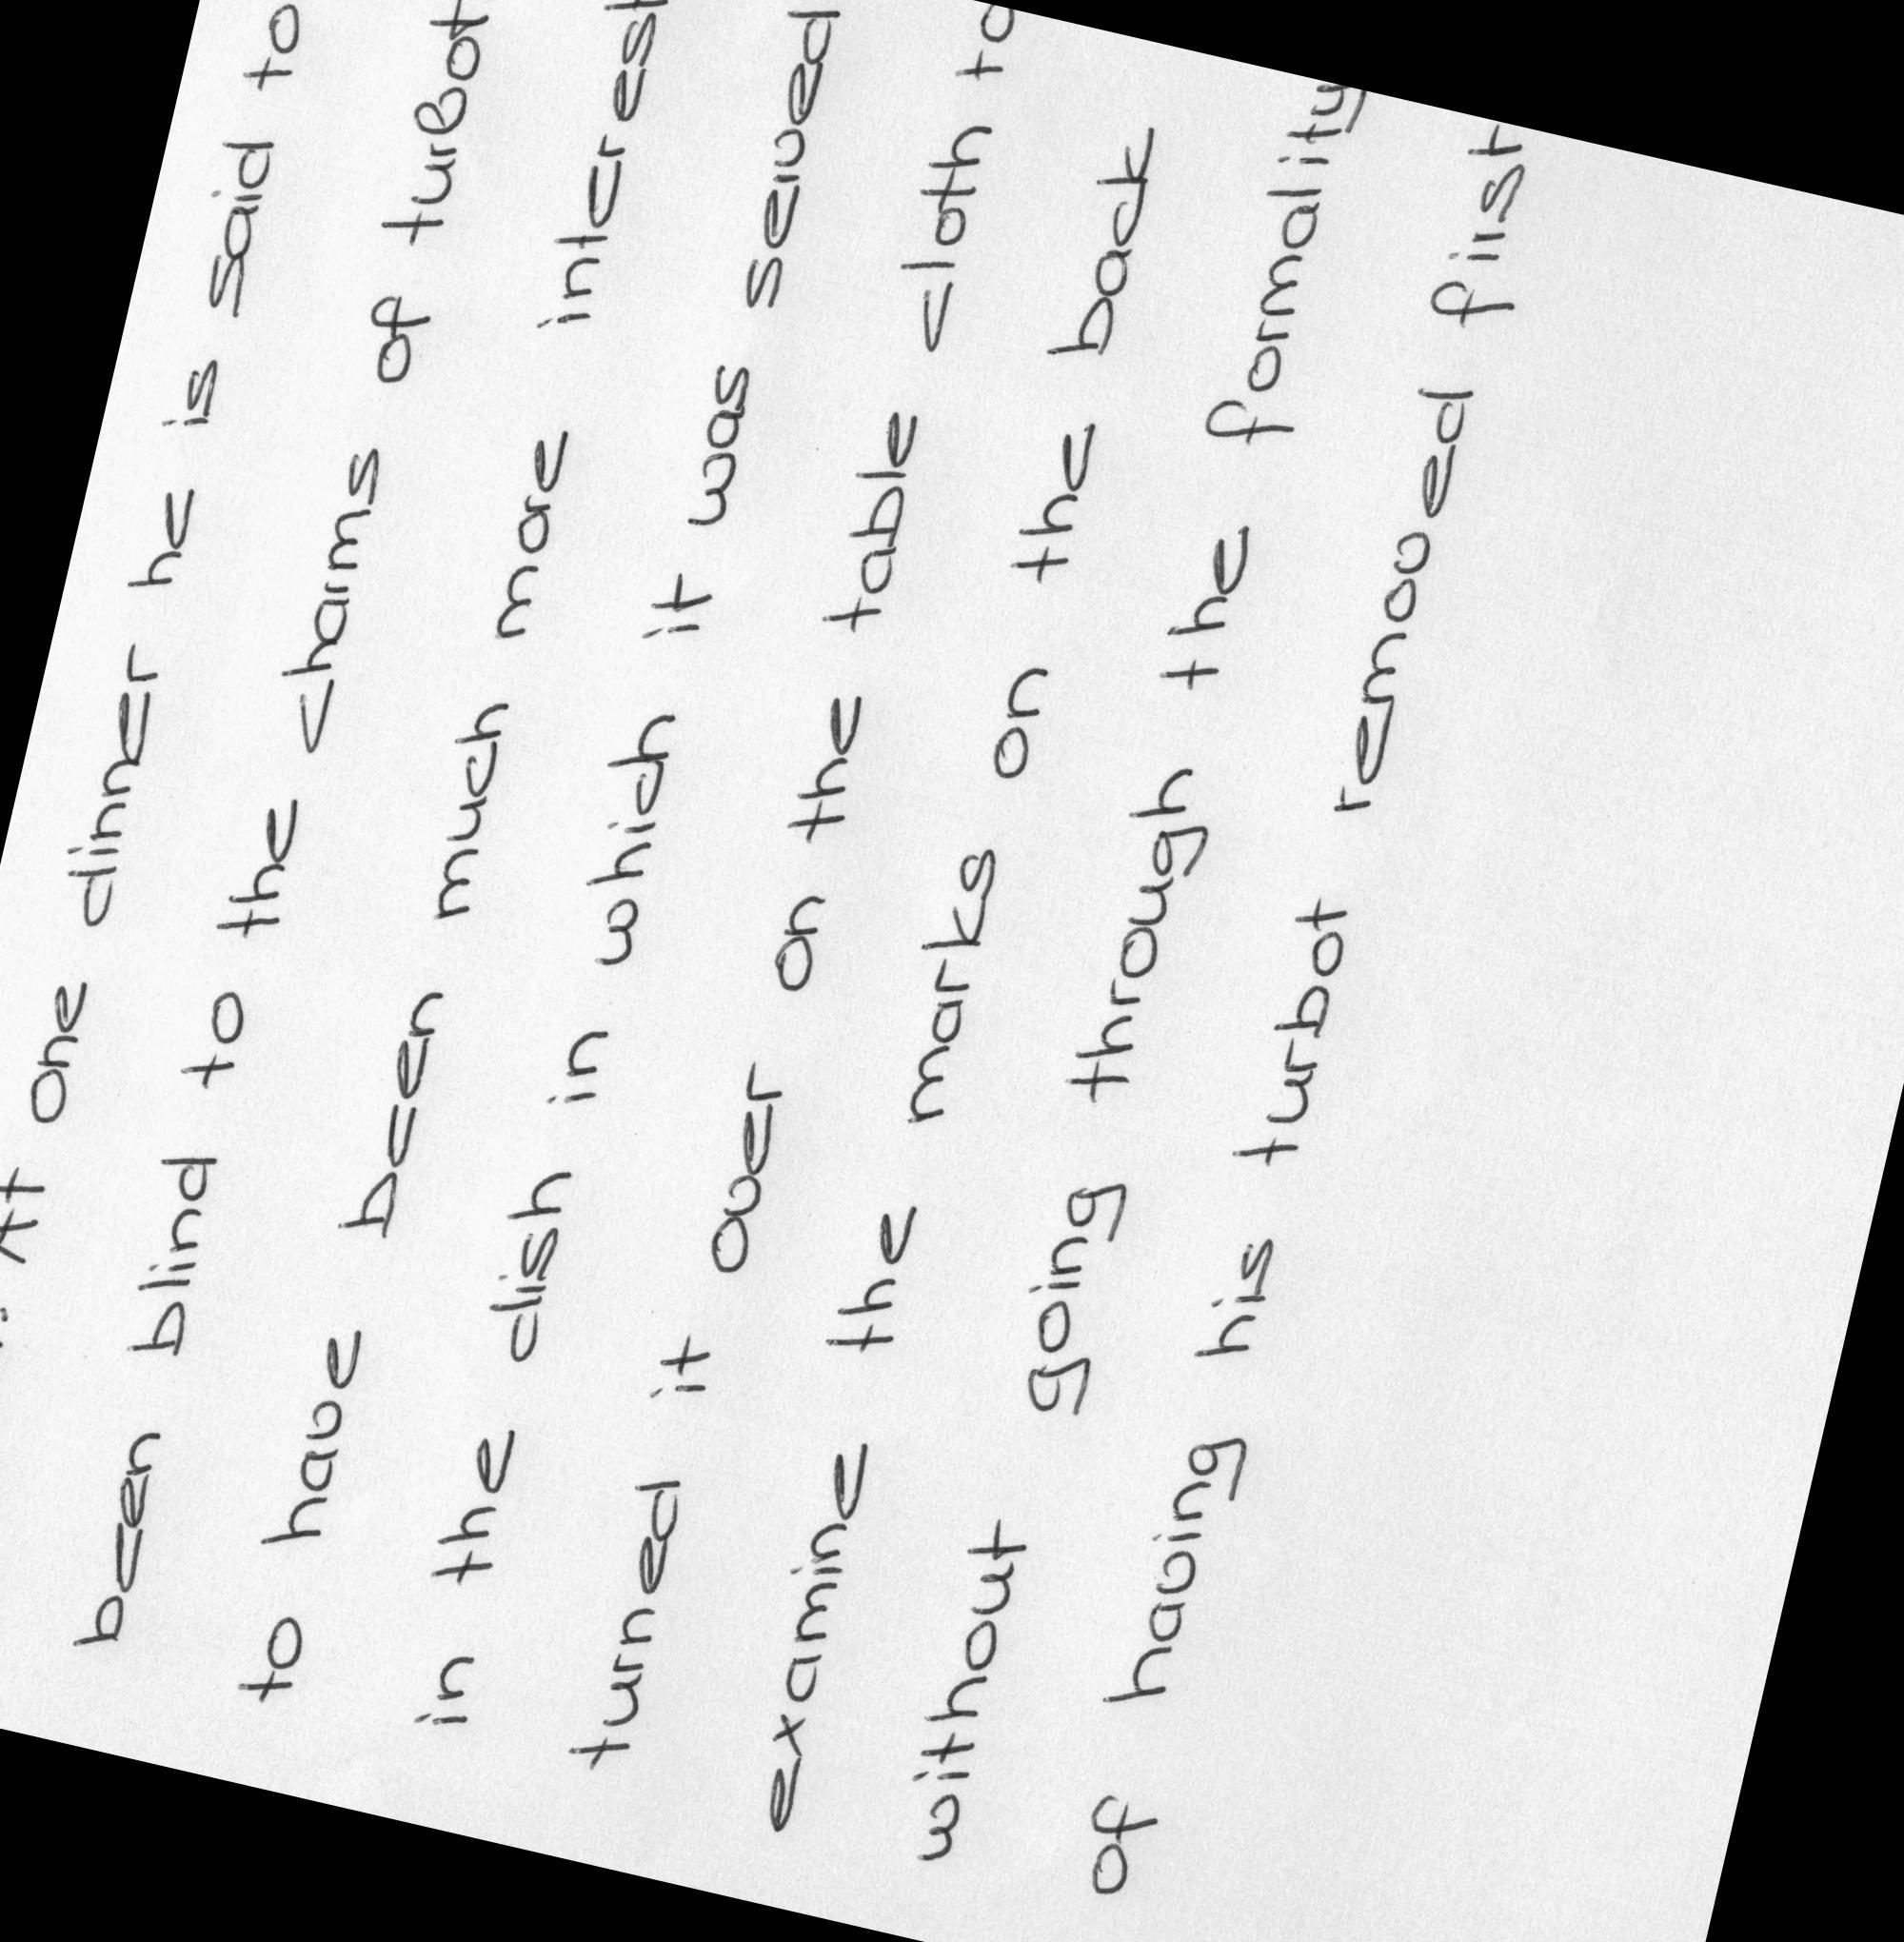 At one dinner he is said to
been blind to the charms of turBot
to have been much more interest
in the dish in which it was served
turned it over on the table cloth to
examine the marks on the back
without going through the formality
of having his turbot removed first